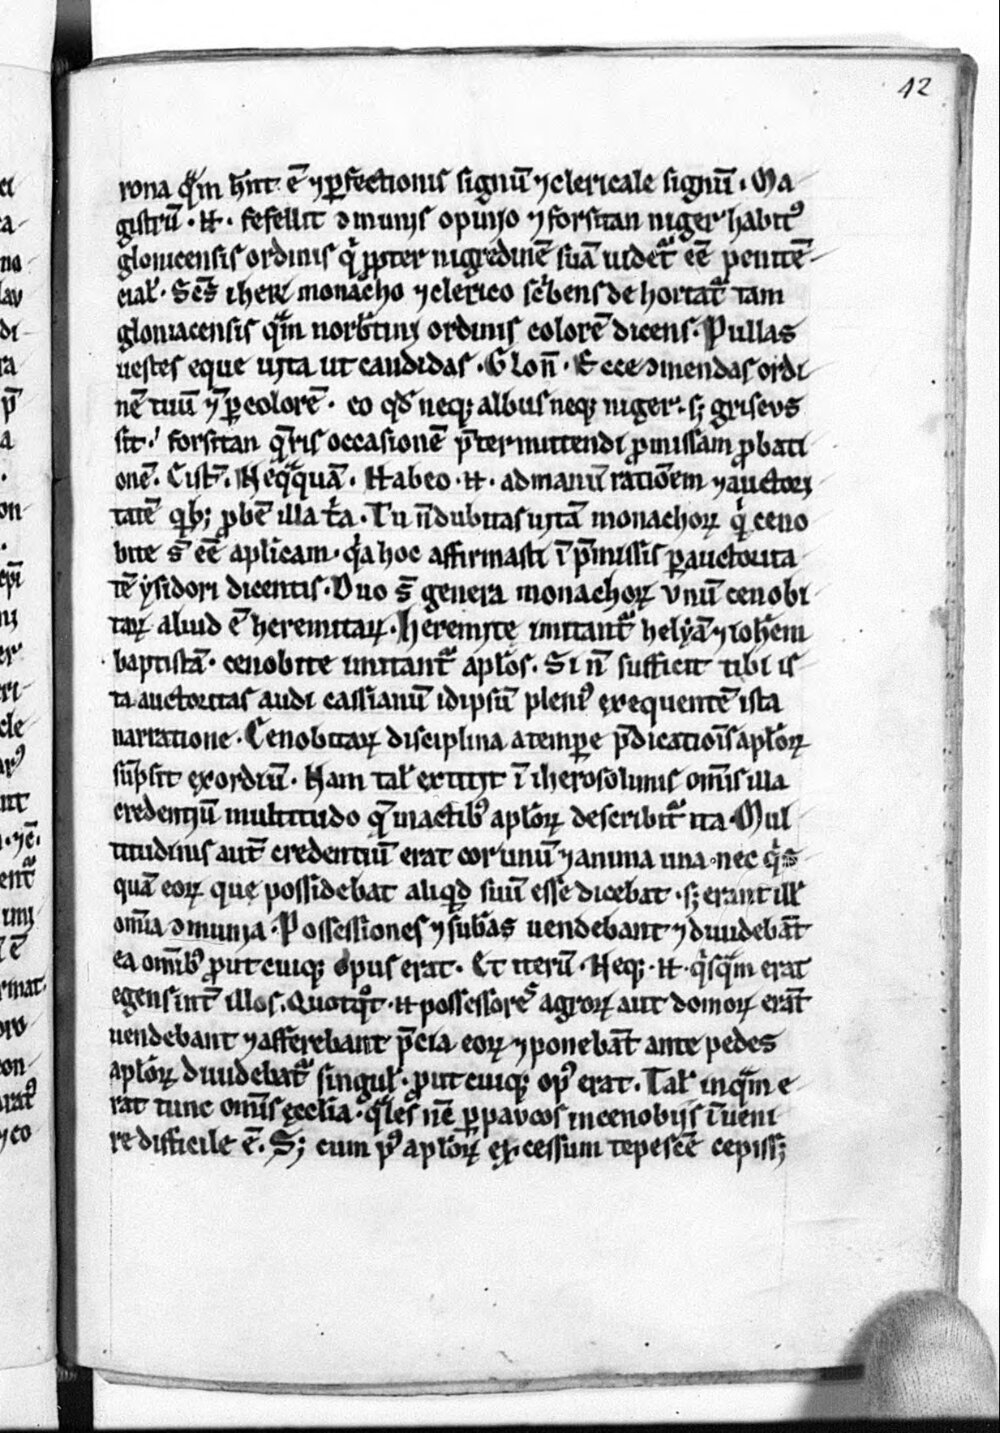 42
rona q̄m h̄nt ē ⁊ ꝑfectionis signū ⁊ clericale signū. Ma
gistrū .N. fefellit ꝯmunis opinio ⁊ forsitan niger habitꝰ
gloniacensis ordinis qͥ ꝓpter nigredinē suā uidet᷑ eē penitē
cial̓. Scs̄ iherꝰ monacho ⁊ clerico sc̓bens dehortat᷑ tam
gloniacensis q̄m norb̓tini ordinis colorē dicens. Pullas
uestes eque uita ut candidas. Glon̄. Ecce ꝯmendas ordi
nē tuū ⁊ ꝑ colorē. eo qd̓ neqꝫ albus neqꝫ niger. sꝫ griseus
sit. forsitan q̄ris occasionē p̄termittendi ꝓmissam ꝓbati
onē. Cist̓. Neq̄quā. Habeo .N. ad manū ratiōem ⁊ auctori
tatē qͥbꝫ ꝓbē illa t̓a. Tu n̄ dubitas uitā monachoꝝ qͥ ceno
bite s̄ eē apl̓icam. qͥa hoc affirmasti ī p̄missis ꝑ auctorita
tē ysidori dicentis. Duo s̄ genera monachoꝝ vnū cenobi
taꝝ aliud ē heremitaꝝ. heremite imitant᷑ helyā ⁊ ioh̓em
baptistā. cenobite imitant᷑ apl̓os. Si n̄ sufficit tibi is
ta auctoritas audi cassianū idipsū pleniꝰ exequentē ista
narratione. Cenobitaꝝ disciplina a tempore p̄dicatiōis apl̓oꝝ
sūpsit exordiū. Nam tal̓ extitit ī iherosolimis om̄is illa
credentiū multitudo q̄ in actibꝰ apl̓oꝝ describit᷑ ita. Mul
titudinis aut̄ credentiū erat cor unū ⁊ anima una. nec qͥs
quā eoꝝ que possidebat aliqd̓ suū esse dicebat. sꝫ erant ill̓
om̄ia ꝯmunia. Possessiones ⁊ sub̓as uendebant ⁊ diuidebāt
ea om̄ibꝰ ꝓut cuiqꝫ opus erat. Et iterū. Neqꝫ .N. qͥsq̄m erat
egens int̓ illos. Quotqͦt .N. possessores agroꝝ aut domoꝝ erāt
uendebant ⁊ afferebant p̄cia eoꝝ ⁊ ponebāt ante pedes
apl̓oꝝ diuidebat᷑ singul̓. ꝓut cuiqꝫ opꝰ erat. Tal̓ inq̄m e
rat tunc om̄is eccl̓ia. q̄les nc̄ ꝑ paucos in cenobiis īueni
re difficile ē. Sꝫ cum pꝰ apl̓oꝝ excessum tepescē cepissꝫ